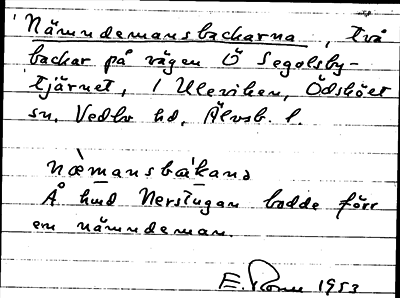 Nämndemansbackarna, två
backar på vägen Ö Segolsby-
tjärnet, / Uleviken, Ödskölt
sn, Vedbo hd, Älvsb. l.
næ̀mansbákana
Å hmd Nerstugan bodde förr
en nämndeman.
E. 1953